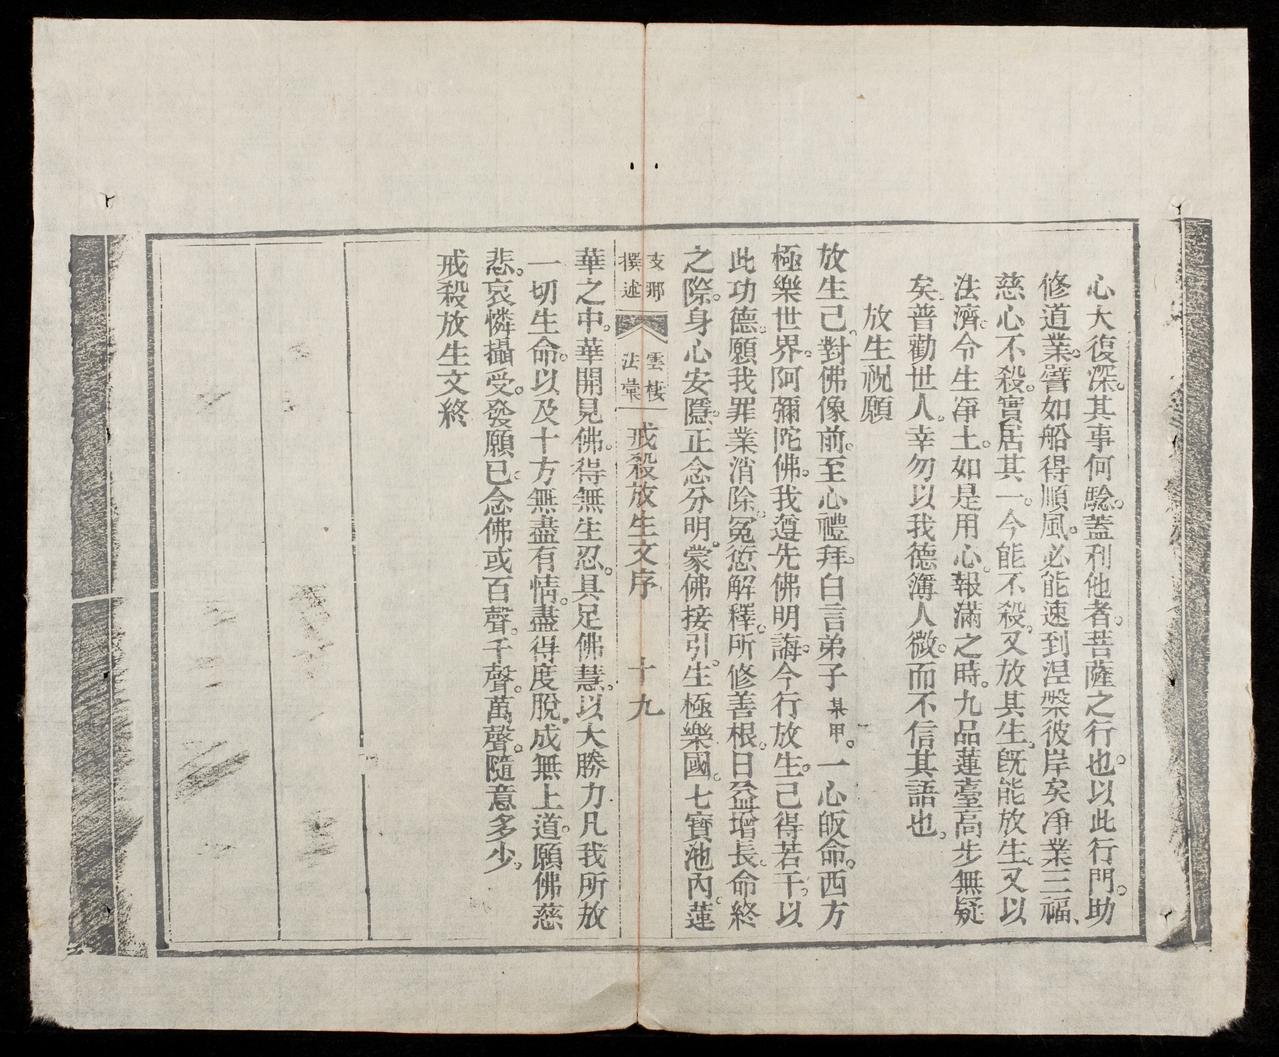 心大復深。其事何騐。蓋利他者。菩薩之行也。以此行門。助
修道業。譬如船得順風。必能速到涅槃彼岸矣淨業三福、
慈心不殺。實居其一。今能不殺。又放其生。既能放生。又以
法濟。令生淨土。如是用心。報滿之時。九品蓮臺高步無疑
矣。普勸世人。幸勿以我德簿人微。而不信其語也。
放生祝願
放生已。對佛像前。至心禮拜。白言弟子某甲。一心皈命。西方
極樂世界。阿彌陀佛。我遵先佛明誨。今行放生。已得若干。以
此功德。願我罪業消除。冤愆解釋。所修善根。日益增長。命終
之際。身心安隱。正念分明。蒙佛接引。生極樂國。七寶池內。蓮
支那
撰述
雲棲
法彙
戒殺放生文序 十九
華之中。華開見佛。得無生忍。具足佛慧。以大勝力凡我所放
一切生命。以及十方無盡有情。盡得度脫。成無上道。願佛慈
悲。哀憐攝受。發願已。念佛或百聲。千聲。萬聲。隨意多少。
戒殺放生文終